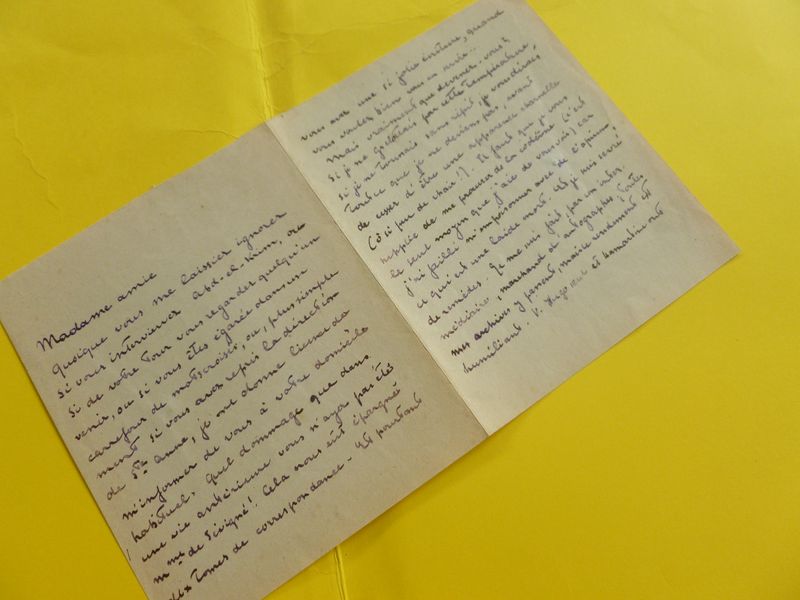 Madame amie
quoique vous me laissiez ignorer
si vous interviewez Abd-el-Krim, ou
si de votre tour vous regardez quelqu'un
venir, ou si vous êtes égarée dans un
carrefour de mots croisés, ou, plus simple
ment si vous avez repris la direction
de Ste Anne, je me donne licence de
m'informer de vous à votre domicile
habituel. quel dommage que dans
une vie antérieure vous n'ayez pas été
Mme de Sévigné! Cela nous eût épargné
dix tomes de correspondance. Et pourtant
vous avez une si jolie écriture, quand
vous voulez bien vous en servir...
Mais vraiment que devenez-vous?
si je ne grelottais par cette température,
si je ne toussais sans répit, je vous dirais
tout ce que je ne deviens pas, avant
de cesser d'être une apparence charnelle
(ô si peu de chair!). Il faut que je vous
supplie de me procurer de la codéine (c'est
le seul moyen que j'aie de vous voir) car
j'ai failli m'empoisonner avec de l'opium,
et qui est une laide mort. et je suis sevré
de remèdes. Je me suis fait, par un inter-
médiaire, marchand d'autographes. toutes
mes archives y passent, maigre rendement et
humiliant. V. Hugo seul et Lamartine ont